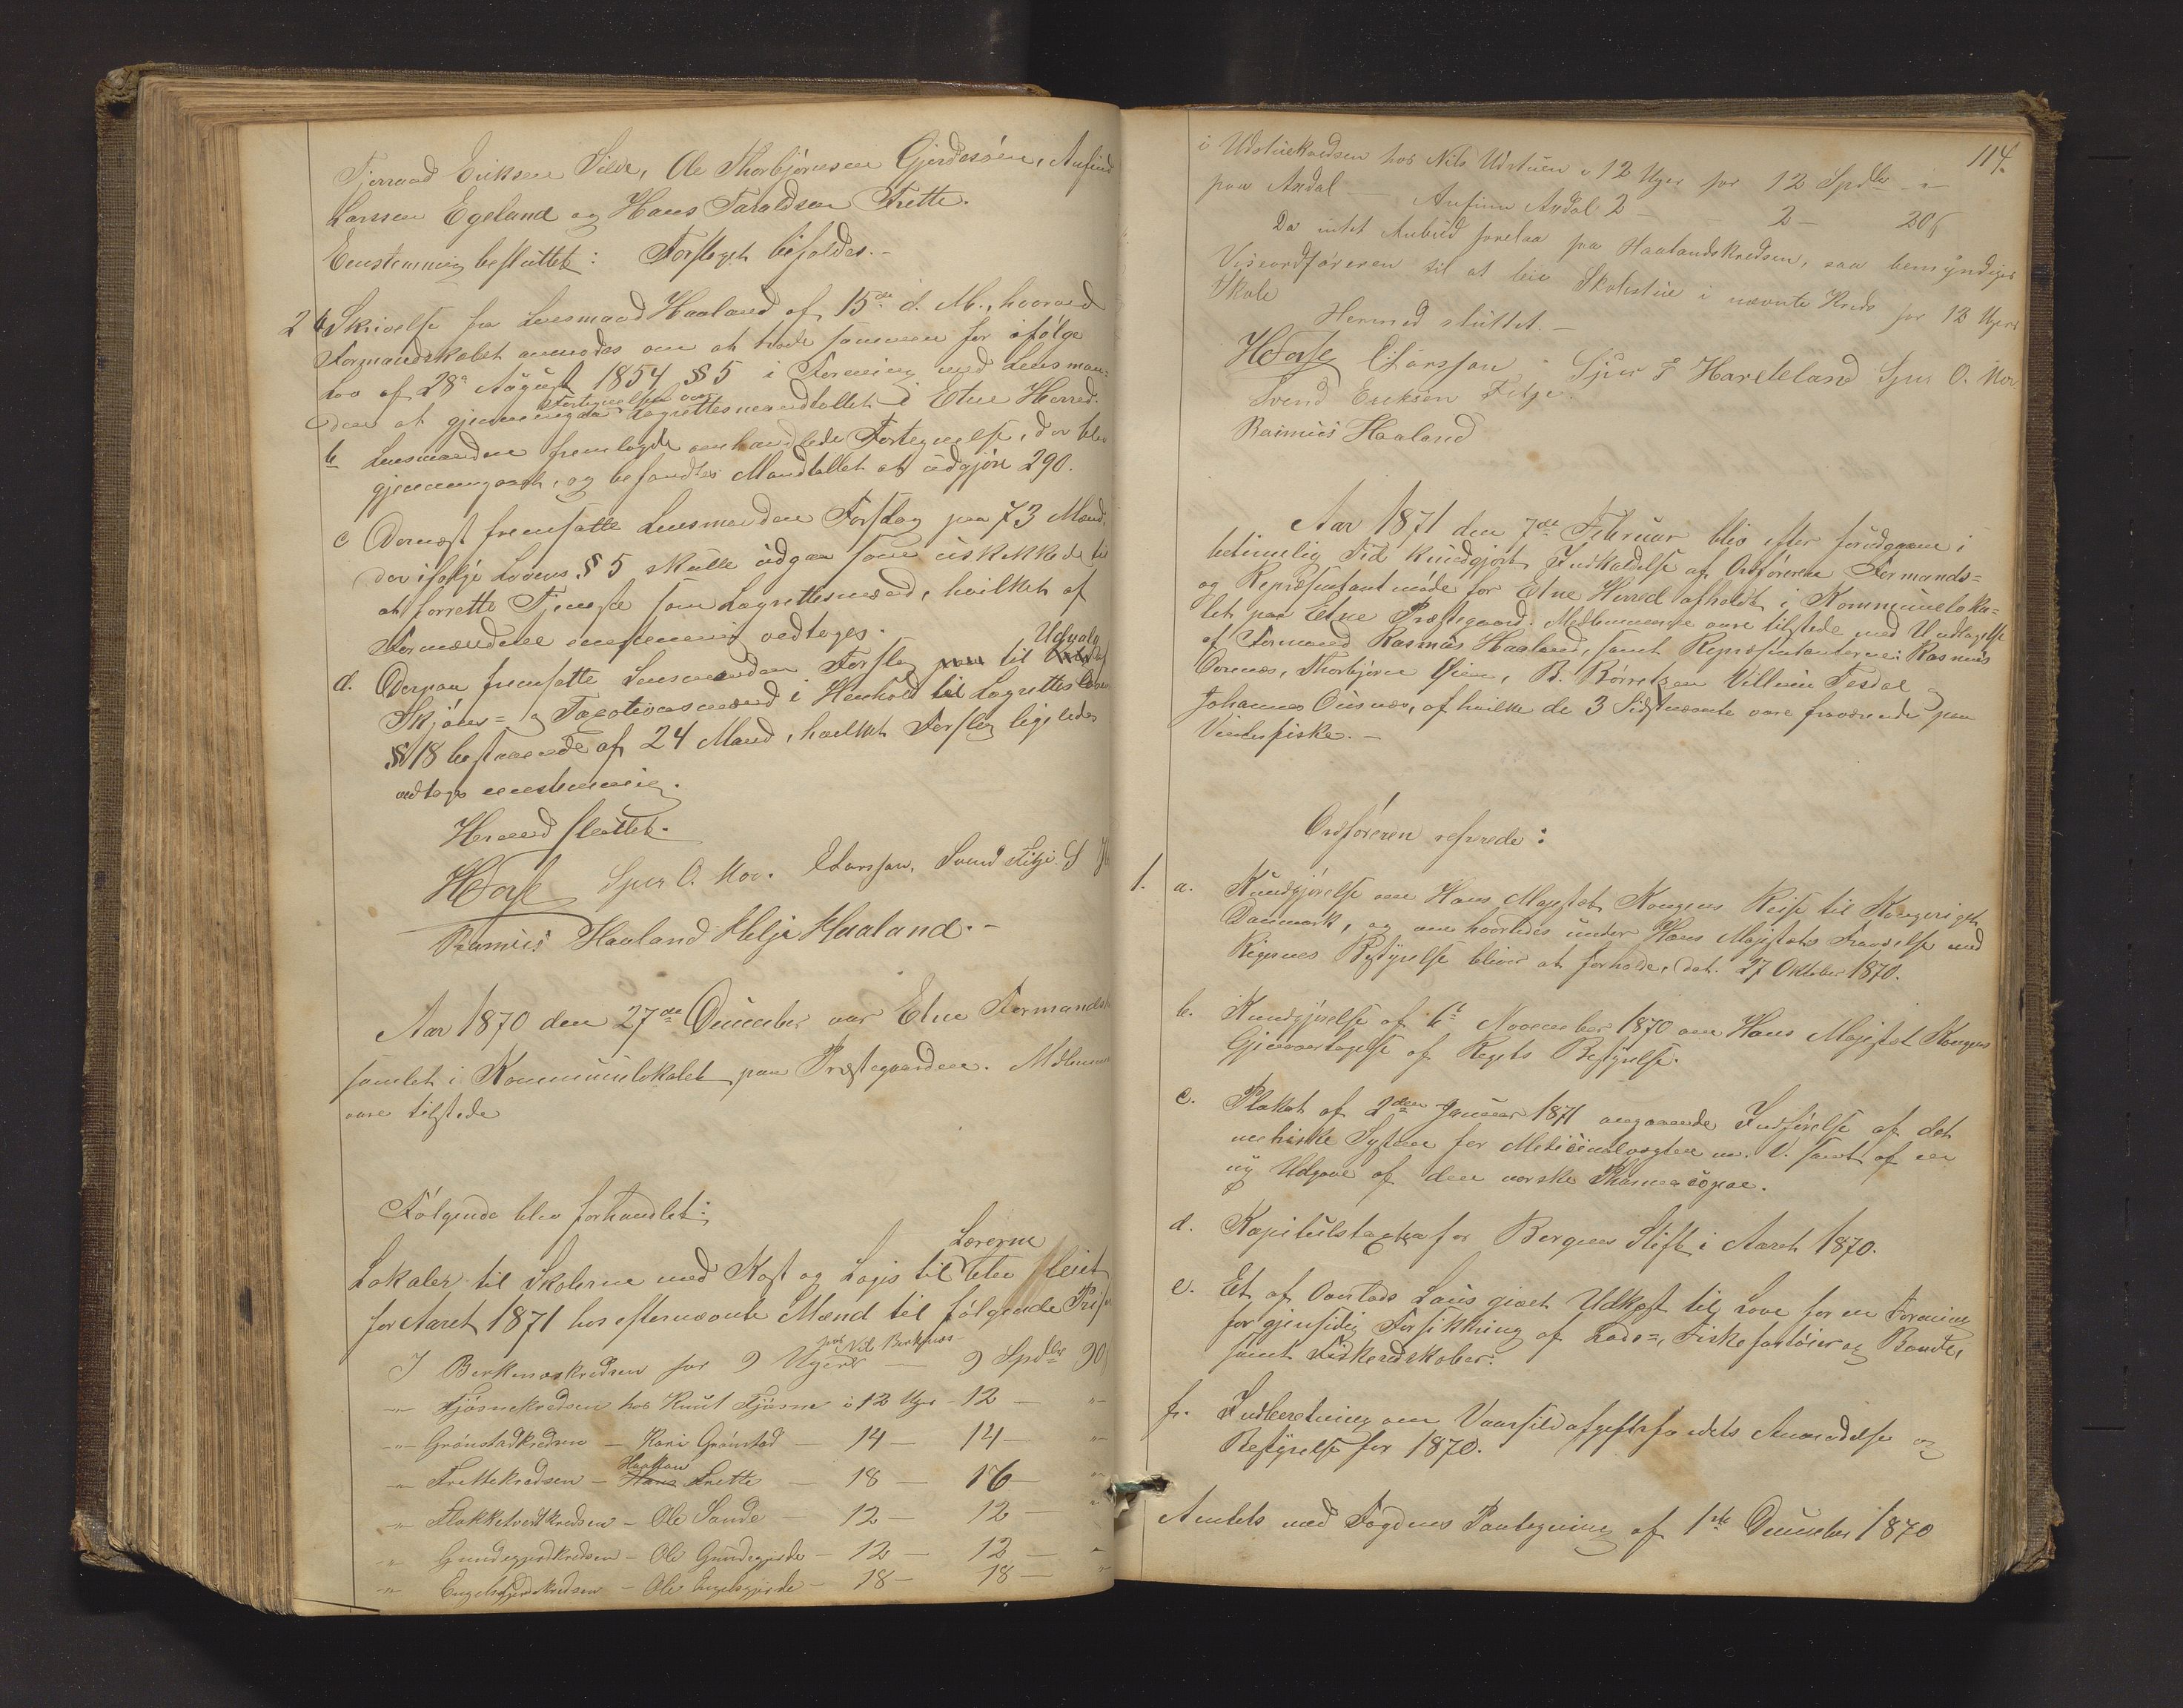 Tjerand Eriksen Silde, Ole Thorbjörnsen Gjerdesöen, Anfind
Larssen Egeland og Hans Taraldsen Frette.
Eenstemmig besluttet: Forslaget bifoldes.-
2 a Skrivelse fra Lensmand Haaland af 15de d. M., hvorved
Formandskabet anmodes om at træde sammen for ifölge
Lov af 28e August 1854 § 5 i Forening med Lensman-
den at gjennemgaa Fortegnelsen over Lagrettesmandtallet i Etne Herred.
b Lensmanden fremlagde omhandlede Fortegnelse, der blev
gjennemgaaet, og befandtes Mandtallet at udgjöre 290.
c Dernæst fremsatte Lensmanden Forslag paa 73 Mænd,
der ifölge Lovens § 5 skulle udgaa som uskikkede til
at forrette Tjeneste som Lagrettesmænd, hvilket af
Formændene eenstemmig vedtoges.
d. Derpaa fremsatte Lensmanden Forslag til Udvalg af
Skjöns= og Taxationsmænd i Henhold til Lagrettesloven
§ 18 bestaaende af 24 Mand, hvilket Forslag ligeledes
vedtoges eenstemmig.
Hermed sluttet.
HForse Sjur O. Moe. ELarsson. Svend Fitje. S
Rasmus Haaland Helje Haaland.-
Aar 1870 den 27de December var Etne Formandsk
samlet i Kommunelokalet paa Præstegaarden. Medlemmerne
vare tilstede
Følgende blev forhandlet:
Lokaler til Skolerne med Kost og Logis til Lærerne blev leiet
for Aaret 1871 hos efternævnte Mænd til følgende Priser
I Berkenæskredsen for 9 Uger hos Nil Berkenæs - 9 Spdlr 90
-"- Fjøsnekredsen hos Knut Fjøsne i 12 Uger - 12 - "
-"- Grönstadkredsen - Kari Grönstad - 14 - 14 - "
-"- Frettekredsen - Haaktan Frette - 18 - 16 - "
-"- Flokketvedtkredsen - Ole Sande - 12 - 12 - "
-"- Gundegjerdkredsen - Ole Gundegjerde - 12 - 12 - "
-"- Engelsgjerdekredsen - Ole Engelsgjerde - 18 - 18 - "
114.
i Udstuekredsen hos Nils Udstuen i 12 Uger for 12 Spdlr - "-
paa Ardal - Anfinn Ardal 2 - 2 - 20 ß
Da intet Anbud forelaa fra Haalandskredsen, saa bemyndiges
Viceordføreren til at leie Skolestue i nævnte Kreds for 12 Ugers
Skole
Hermed sluttet.-
HForse ELarsson Sjur T Hardeland Sjur O. Moe
Svend Eriksen Fitje.
Rasmus Haaland
Aar 1871 den 7de Februar blev efter forudgaaen i
betimelig Tid kundgjort Indkaldelse af Ordføreren Formands=
og Repræsentantmøde for Etne Herred afholdt i Kommuneloka=
let paa Etne Præstegaard. Medlemmerne vare tilstede med Undtagelse
af Formand Rasmus Haaland, samt Repræsentanterne: Rasmus
Oernes, Thorbjørn Øien, B. Børretzen Villum Tesdal og
Johannes Ousnæs, af hvilke de 3 Sidstnævnte vare fraværende paa
Vinterfiske.-
Ordføreren refererede:
1. a. Kundgjørelse om Hans Majestæt Kongens Reise til Kongeriget
Danmark, og om hvorledes under Hans Majestæts Fraværelse med
Rigernes Bestyrelse bliver at forholde, dat. 27 Oktober 1870.
b. Kundgjørelse af 6t November 1870 om Hans Majestæt Kongens
Gjenovertagelse af Rigets Bestyrelse.
c. Plakat af 2den Januar 1871 angaaende Indførelse af det
metriske System for Medicinalvægten m. V. samt af en
ny Udgave af den norske Pharmacopoe.
d. Kapitulstaxten for Bergens Stift i Aaret 1870.
e. Et af Overlods Laus givet Udkast til Love for en Forening
for gjensidig Forsikkring af Lods=, Fiskefartøier og Baade,
samt Fiskeredskaber.
f. Indberetning om Vaarsildafgiftsfondets Anvendelse og
Bestyrelse for 1870.
Amtets med Fogdens Paategning af 1ste December 1870